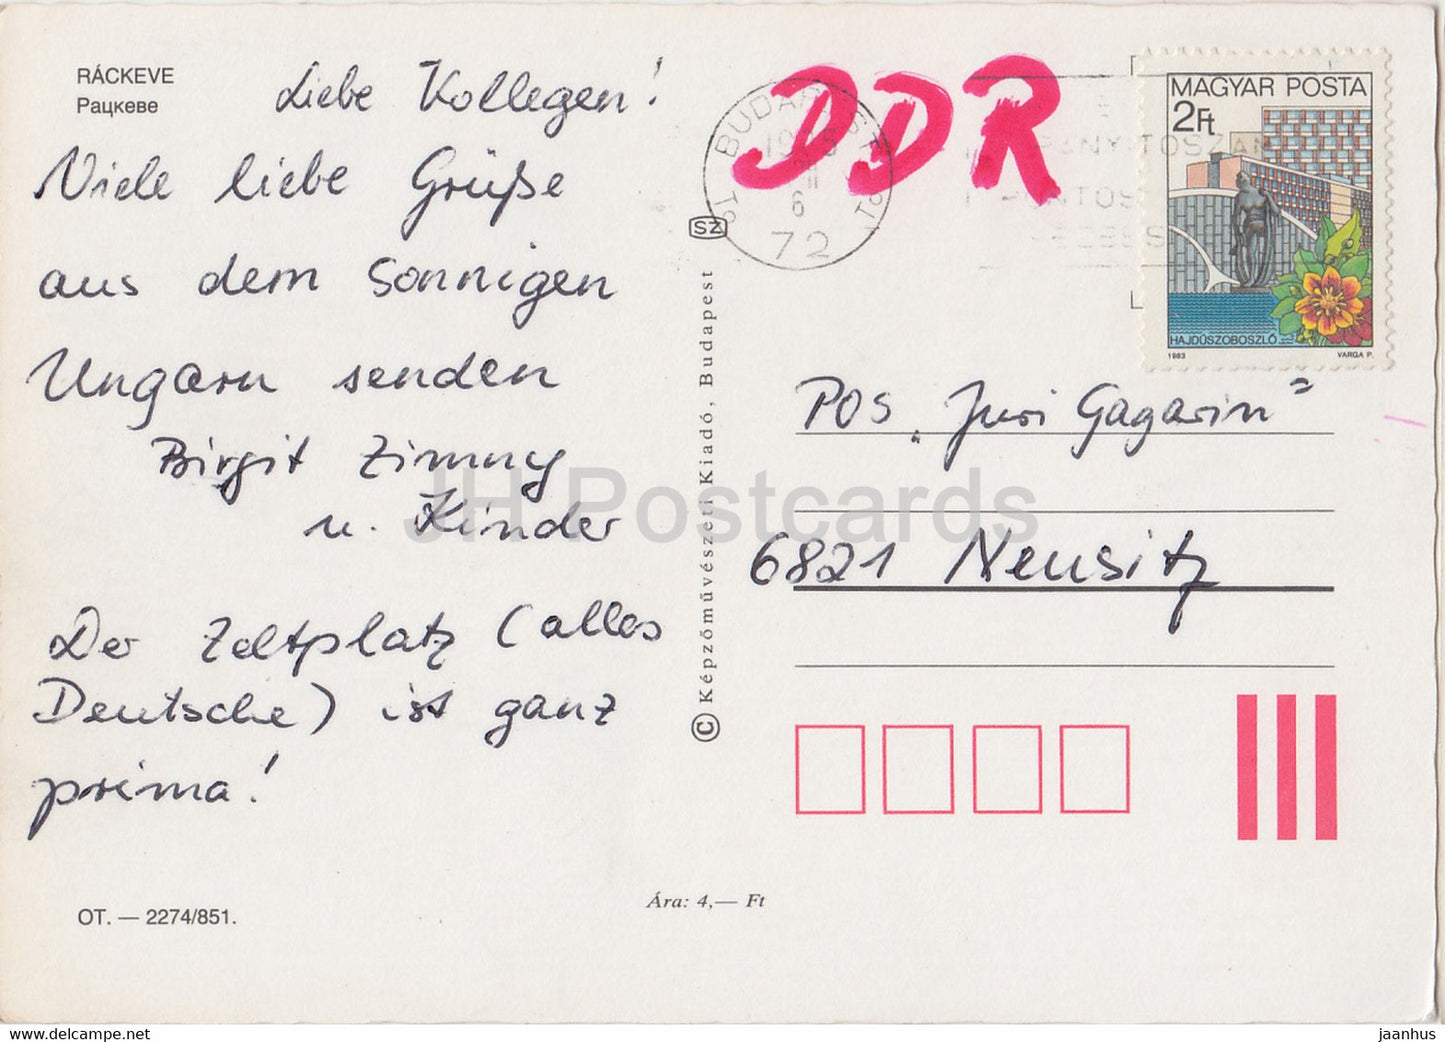 RÁCKEVE
Рацкеве
Liebe Kollegen!
Viele liebe Grüße
aus dem sonnigen
Ungarn senden
Birgit Zimny
u. Kinder
Der Zeltplatz (alles
Deutsche) ist ganz
prima!
OT. — 2274/851.
SZ
© Képzőművészeti Kiadó, Budapest
Ára: 4,— Ft
DDR
BUDAPEST
6
72
MAGYAR POSTA
2Ft
HAJDÚSZOBOSZLÓ
1983 VARGA P.
POS „Juri Gagarin"
6821 Neusitz
JH Postcards
jaanhus.ecrater.net
jaanhus